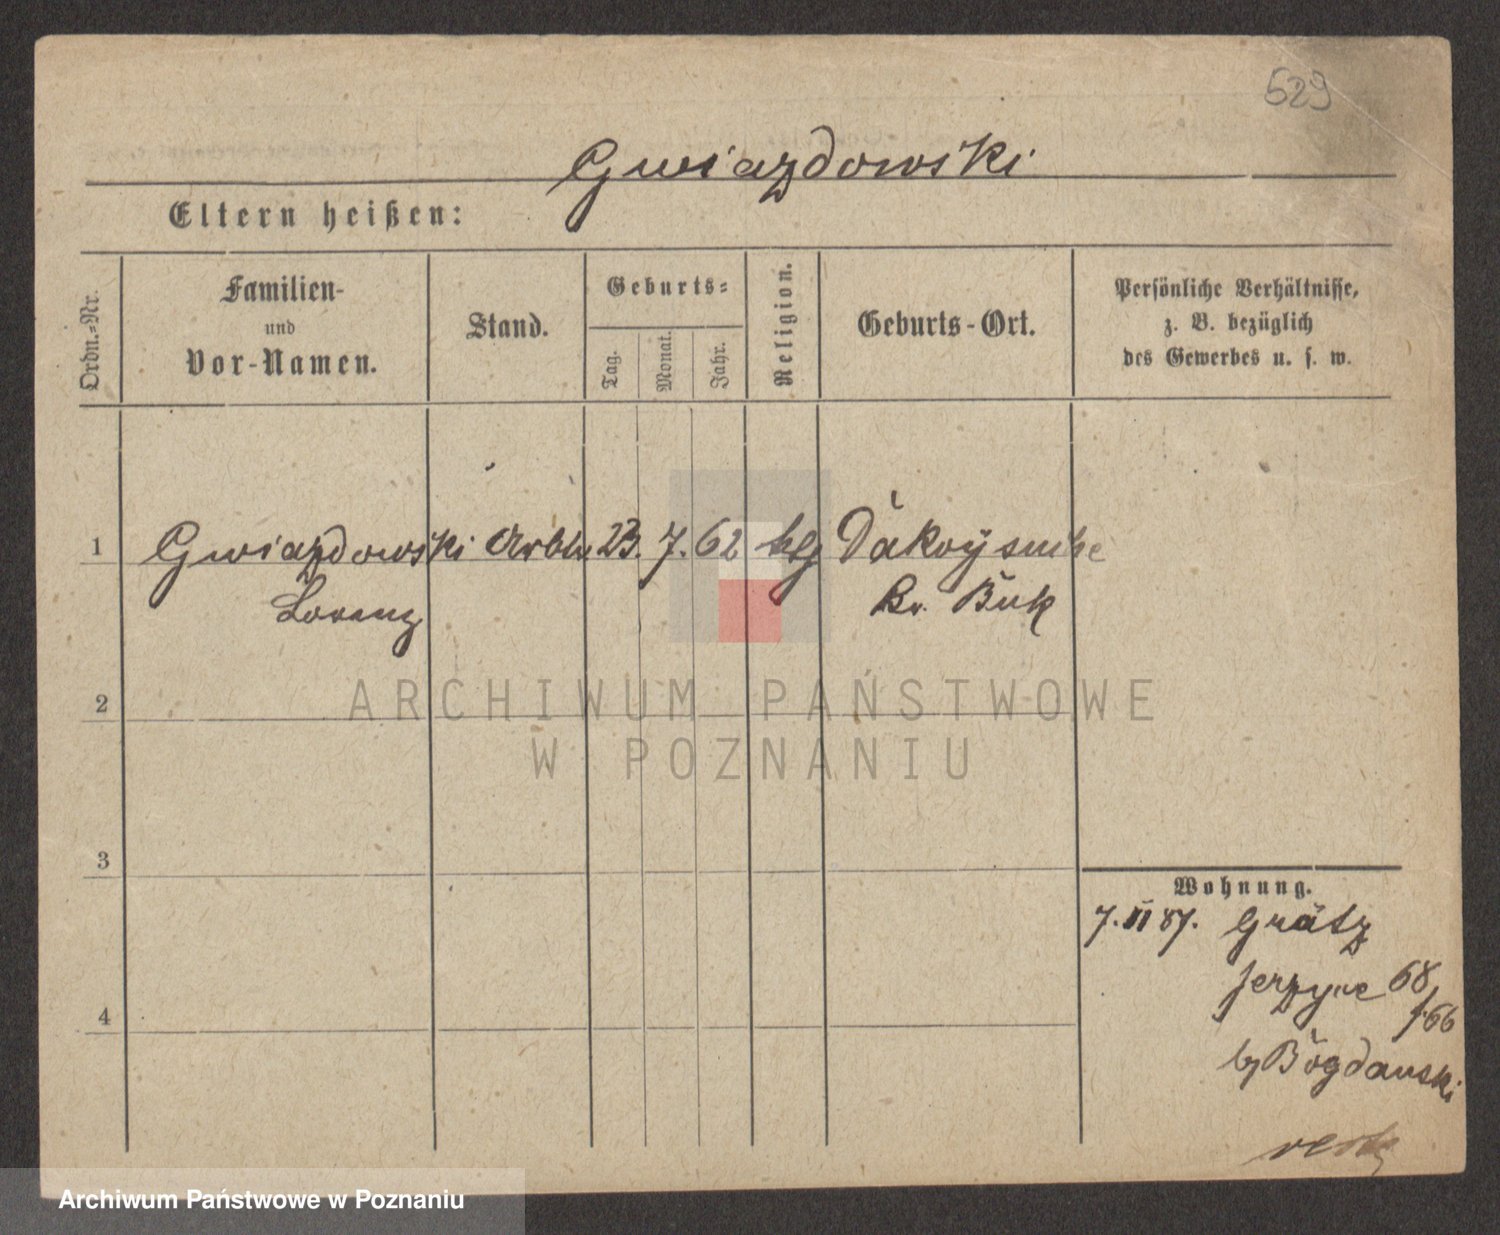 529
Gwiazdowski
Eltern heißen:
Ordn.-Nr.
Familien-
und
Vor-Namen.
Stand.
Geburts-
Tag.
Monat.
Jahr.
Religion.
Geburts-Ort.
Persönliche Verhältnisse,
z. B. bezüglich
des Gewerbes u. s. w.
1 Gwiazdowski Arbtr 23. 7. 62 ktg Dakoÿsuche
Lorenz Kr. Buk
2
ARCHIWUM PAŃSTWOWE
W POZNANIU
3
Wohnung.
7. VI 87. Grätz
Jerzyce 68
f. 66
by Bogdanski
4
Archiwum Państwowe w Poznaniu